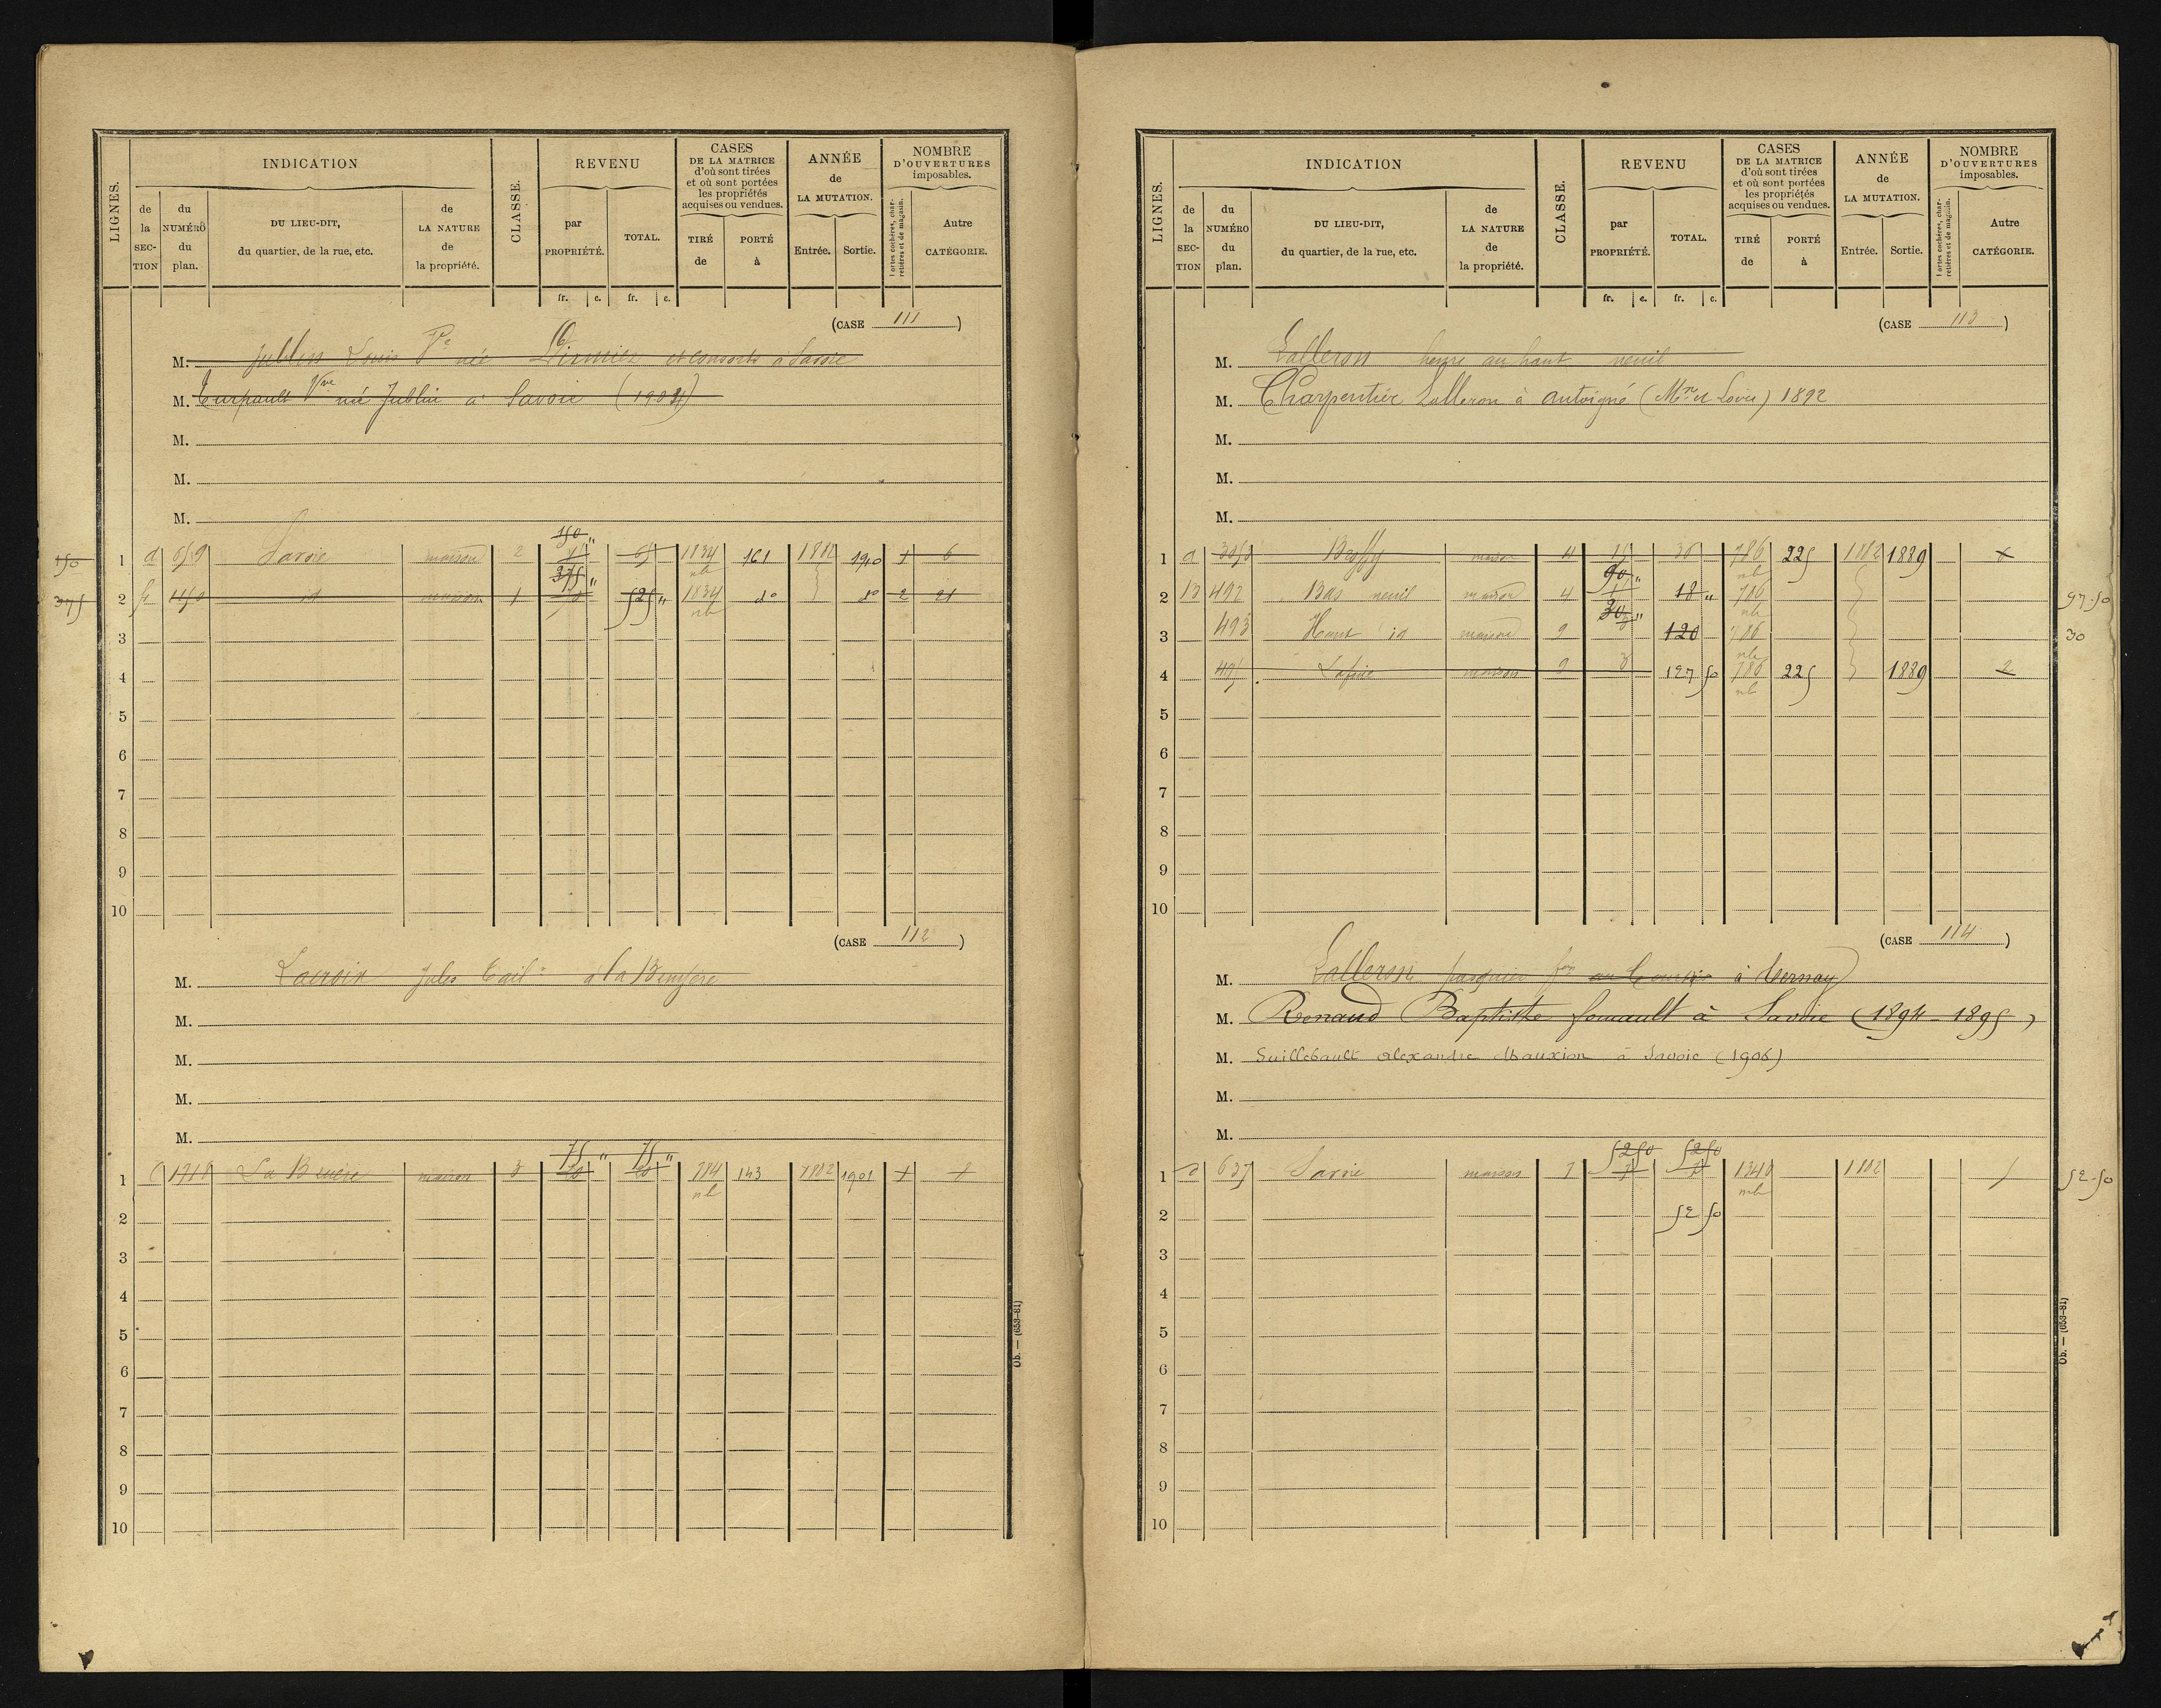 LIGNES. INDICATION CLASSE. REVENU CASES DE LA MATRICE d'où sont tirées et où sont portées les propriétés acquises ou vendues. ANNÉE de LA MUTATION. NOMBRE D'OUVERTURES imposables.
de la SECTION du NUMÉRO du plan. DU LIEU-DIT, du quartier, de la rue, etc. de LA NATURE de la propriété. par PROPRIÉTÉ. TOTAL. TIRÉ de PORTÉ à Entrée. Sortie. Portes cochères, charretières et de magasin. Autre CATÉGORIE.
fr. c. fr. c.
(CASE 111)
M. Jublin Louis née et consorts à Savoie
M. Turpault Vve née Jublin à Savoie (1904)
M.
M.
M.
150
150 1 d 659 Savoie maison 2 1834 161 1882 1910 1 6
nb
375
375 2 id maison 1 525 " 1834 do do 2 21
nb
3
4
5
6
7
8
9
10
(CASE 112)
M. Lacroix Jules à la
M.
M.
M.
M.
75 " 75 "
1 C 1718 maison 3 20 20 784 143 1882 1901 1
nb
2
3
4
5
6
7
8
9
10
Ob. — (653-81)
LIGNES. INDICATION CLASSE. REVENU CASES DE LA MATRICE d'où sont tirées et où sont portées les propriétés acquises ou vendues. ANNÉE de LA MUTATION. NOMBRE D'OUVERTURES imposables.
de la SECTION du NUMÉRO du plan. DU LIEU-DIT, du quartier, de la rue, etc. de LA NATURE de la propriété. par PROPRIÉTÉ. TOTAL. TIRÉ de PORTÉ à Entrée. Sortie. Portes cochères, charretières et de magasin. Autre CATÉGORIE.
fr. c. fr. c.
(CASE 113)
M. Lalleron henri au haut neuil
M. Charpentier Lalleron à Antoigné (Mne et Loire) 1892
M.
M.
M.
1 a maison 4 15 36 786 225 1882 1889
nb
90 "
2 13 492 Bas neuil maison 4 18 " 786 97.50
nb
30 "
3 493 Haut id maison 9 120 786 30
nb
4 maison 9 3 127 50 786 225 1889 2
nb
5
6
7
8
9
10
(CASE 114)
M. Lalleron à Vernay
M. Renaud Baptiste fouault à Savoie (1894-1895)
M. Guillebault Alexandre Mauxion à Savoie (1906)
M.
M.
52 50 52 50
1 637 Savoie maison 7 1340 1882 52.50
nb
2 52 50
3
4
5
6
7
8
9
10
Ob. — (653-81)